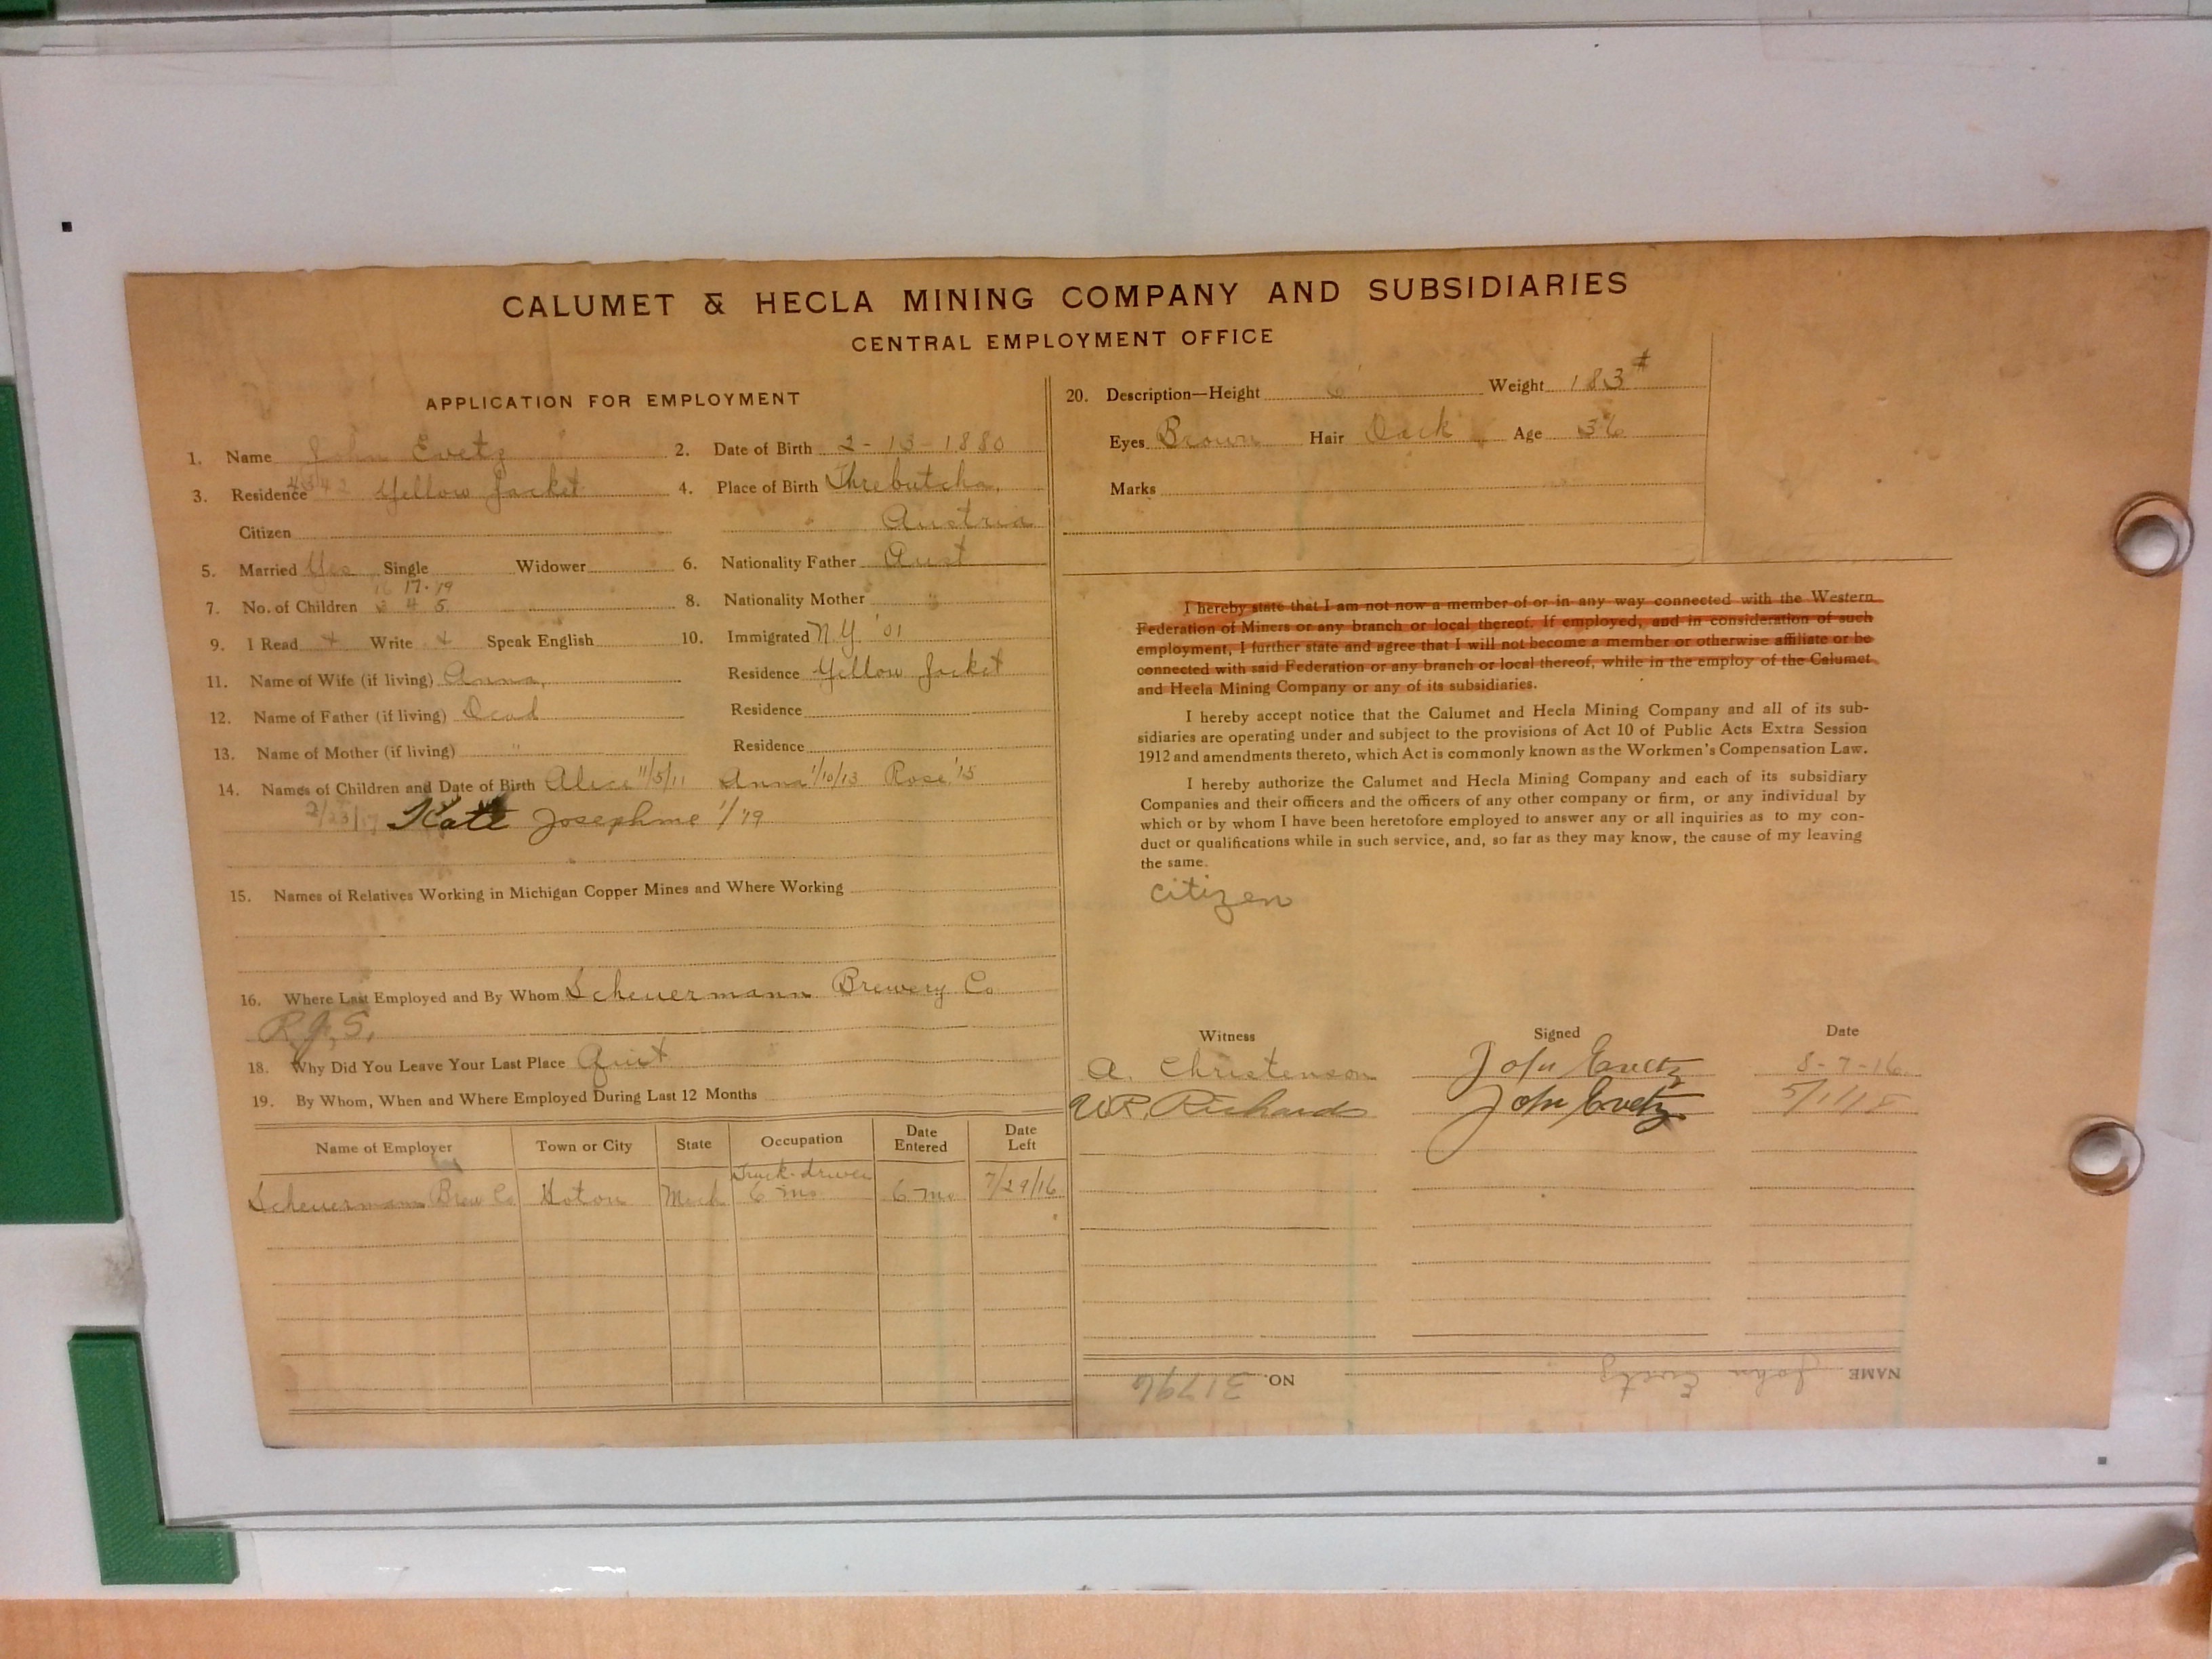 CALUMET & HECLA MINING COMPANY AND SUBSIDIARIES
CENTRAL EMPLOYMENT OFFICE
APPLICATION FOR EMPLOYMENT
1. Name John Evetz 2. Date of Birth 2-13-1880
3. Residence Yellow Jacket 4. Place of Birth Threbutcha,
Citizen Austria
5. Married Yes Single Widower 6. Nationality Father Aust
17-19
7. No. of Children 3 4 5 8. Nationality Mother "
9. I Read Write Speak English 10. Immigrated N.Y. '01
11. Name of Wife (if living) Anna, Residence Yellow Jacket
12. Name of Father (if living) Dead Residence
13. Name of Mother (if living) " Residence
14. Names of Children and Date of Birth Alice 11/5/11 Anna 1/10/13 Rose '15
2/25/17 Kate Josephine 1/'19
15. Names of Relatives Working in Michigan Copper Mines and Where Working
16. Where Last Employed and By Whom Scheuermann Brewery Co
R.J.S.
18. Why Did You Leave Your Last Place Quit
19. By Whom, When and Where Employed During Last 12 Months
Name of Employer Town or City State Occupation Date Entered Date Left
Truck-driver
Scheuermann Brew Co Hoton Mich 6 mo 6 mo 7/29/16
20. Description—Height 6' Weight 183#
Eyes Brown Hair Dark Age 36
Marks
I hereby state that I am not now a member of or in any way connected with the Western
Federation of Miners or any branch or local thereof. If employed, and in consideration of such
employment, I further state and agree that I will not become a member or otherwise affiliate or be
connected with said Federation or any branch or local thereof, while in the employ of the Calumet
and Hecla Mining Company or any of its subsidiaries.
I hereby accept notice that the Calumet and Hecla Mining Company and all of its sub-
sidiaries are operating under and subject to the provisions of Act 10 of Public Acts Extra Session
1912 and amendments thereto, which Act is commonly known as the Workmen's Compensation Law.
I hereby authorize the Calumet and Hecla Mining Company and each of its subsidiary
Companies and their officers and the officers of any other company or firm, or any individual by
which or by whom I have been heretofore employed to answer any or all inquiries as to my con-
duct or qualifications while in such service, and, so far as they may know, the cause of my leaving
the same.
citizen
Witness Signed Date
A. Christenson John Evetz 8-7-16.
W.R. Richards John Evetz 5/1/18
NAME John Evetz NO. 31796